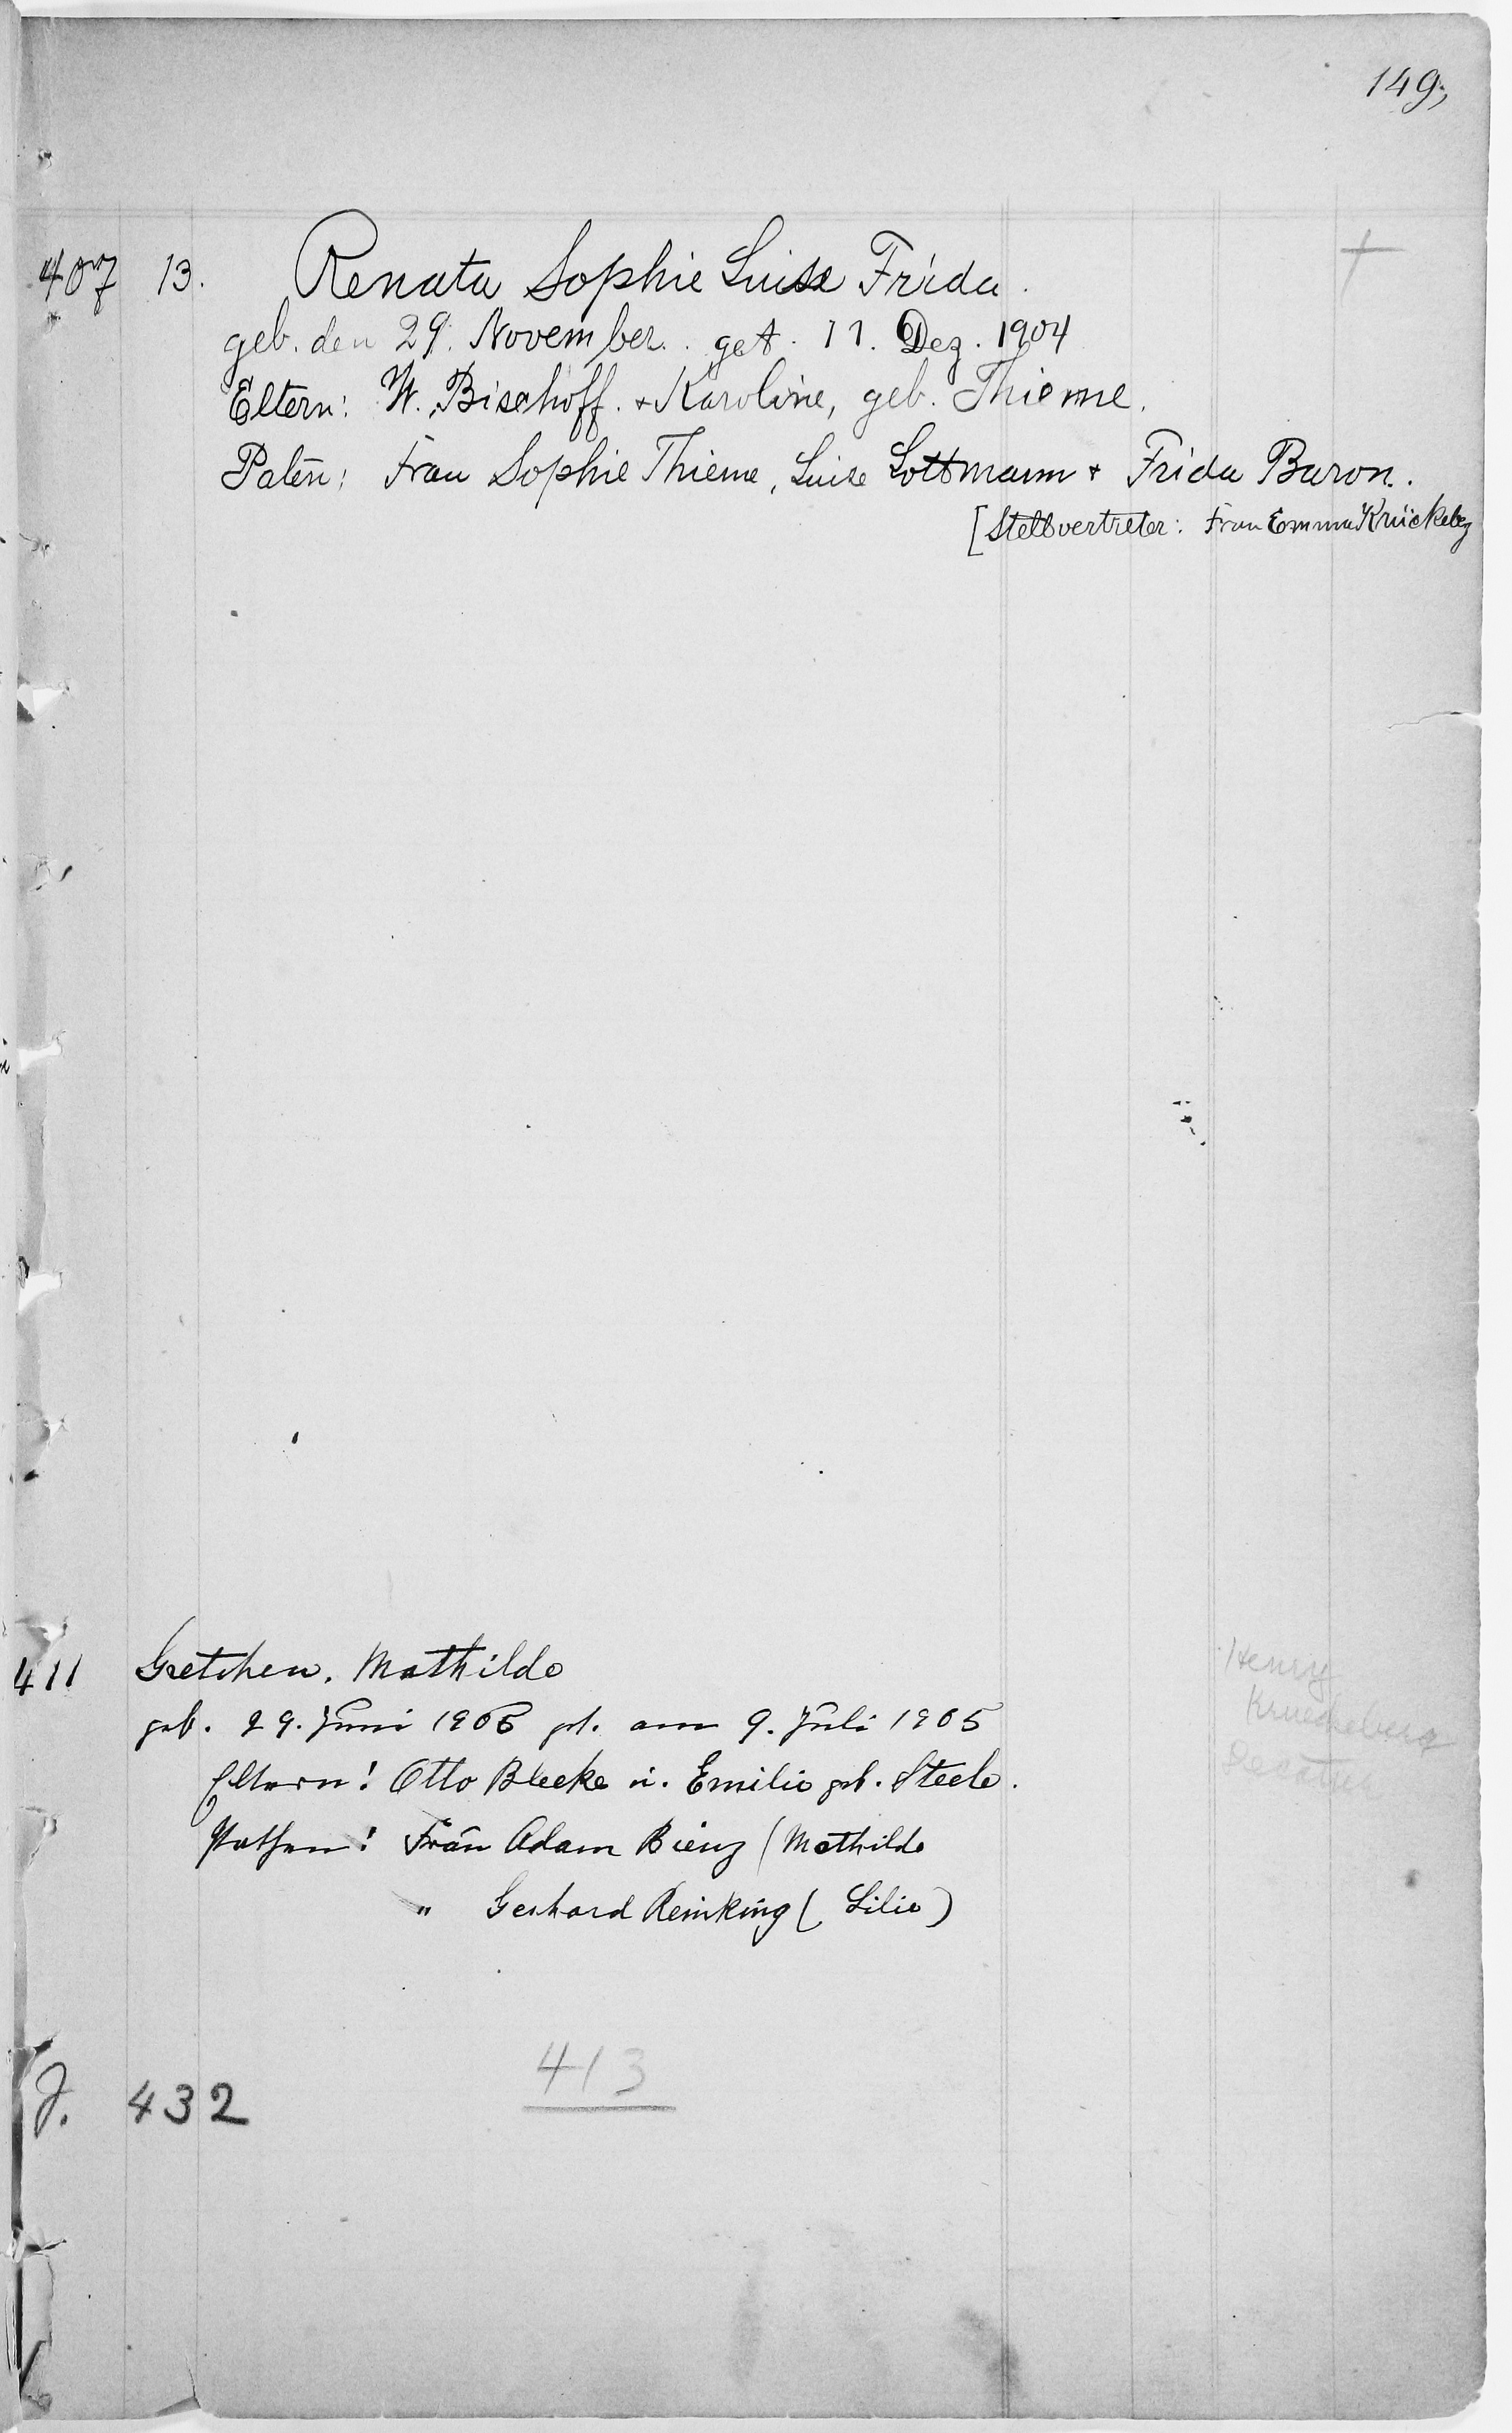 149,
407 13. Renata Sophie Luise Frida.
geb. den 29. November. get. 11. Dez. 1904
Eltern: W. Bischoff. + Karoline, geb. Thieme.
Paten: Frau Sophie Thieme, Luise Lottmann + Frida Baron.
[Stellvertreter: Frau Emma Krückeberg
411 Gretchen. Mathilde
geb. 29. Juni 1905 get. am 9. Juli 1905
Eltern: Otto Bleeke u. Emilie geb. Steele.
Pathen: Frau Adam Bienz (Mathilde
" Gerhard Reinking (Lilie)
Henry
Krueckeberg
Decatur
413
J. 432